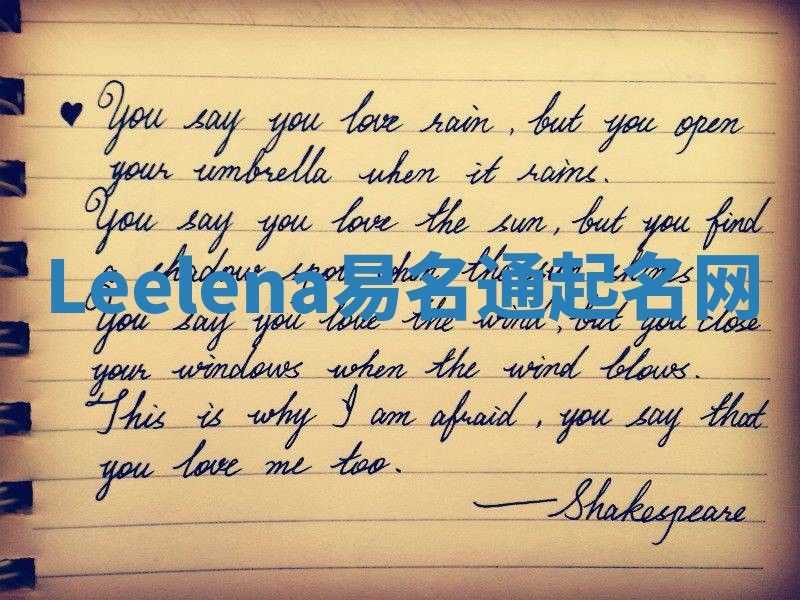 ♥ You say you love rain, but you open
your umbrella when it rains.
You say you love the sun, but you find
a shadow spot when the sun shines
Leelena易名通起名网
You say you love the wind, but you close
your windows when the wind blows.
This is why I am afraid, you say that
you love me too.
— Shakespeare